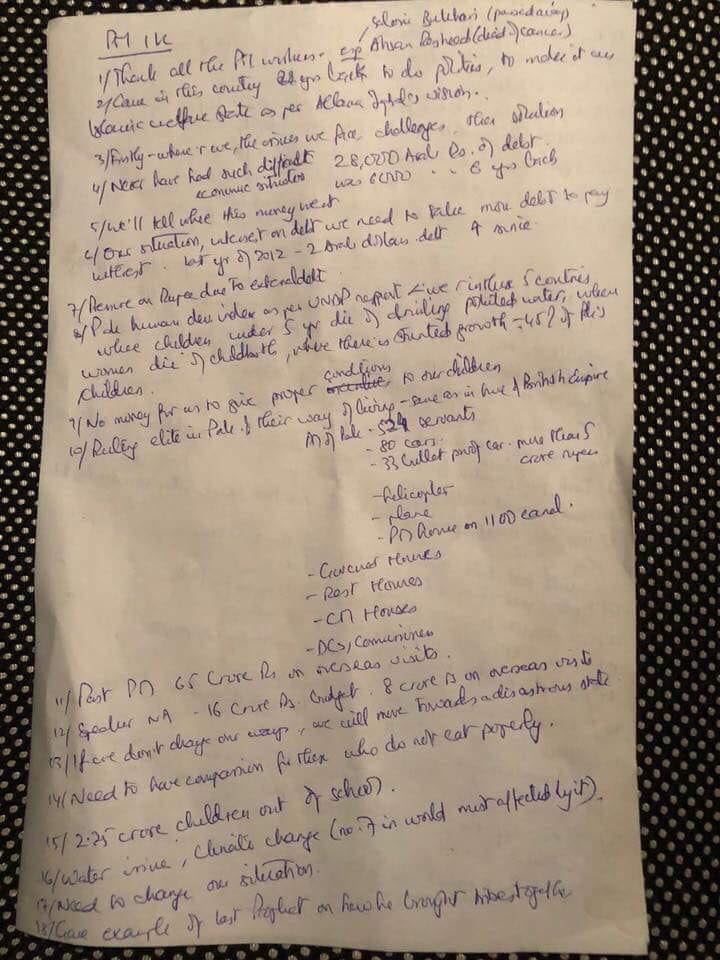 PM IK
Salonie Bukhari (passed away)
1/ Thank all the PTI workers - esp Ahsan Rasheed (died of cancer)
2/ Came in this country 22 yrs back to do politics, to make it an
Islamic welfare state as per Allama Iqbal's vision.
3/ Firstly - where r we, the crises we face, challenges, then solution
4/ Never have had such difficult economic situation 28,000 Arab Rs. of debt.
was 6000 " " 6 yrs back
5/ We'll tell where this money went
6/ Our situation, interest on debt we need to take more debt to pay
interest. last yr of 2012 - 2 Arab dollars debt
7/ Pressure on Rupee due to external debt
8/ Pak human dev index as per UNDP report < we r in those 5 countries
where children under 5 yr die of drinking polluted water, where
women die of childbirth, where there is stunted growth - 45% of Pak's
children.
9/ No money for us to give proper conditions to our children
10/ Ruling elite in Pak & their way of living - same as in time of British Empire
PM of Pak - 524 servants
- 80 cars
- 33 bullet proof car. more than 5
crore rupees
- helicopter
- plane
- PM house on 1100 canal.
- Governor Houses
- Rest Houses
- CM Houses
- DCs, Commissioners
11/ Past PM 65 Crore Rs on overseas visits.
12/ Speaker NA - 16 Crore Rs. budget. 8 crore Rs on overseas visits
13/ If we don't change our ways, we will move towards a disastrous state
14/ Need to have compassion for those who do not eat properly.
15/ 2.25 crore children out of school.
16/ Water issue, climate change (no. 7 in world most affected by it).
17/ Need to change our situation.
18/ Gave example of last Prophet on how he brought tribes together